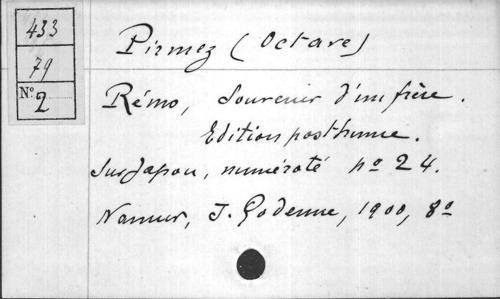 433
79
N° 2
Pirmez (Octave)
Rémo, Souvenir d'un frère.
Edition posthume.
sur Japon, numéroté no 24.
Namur, J. Godenne, 1900, 8o